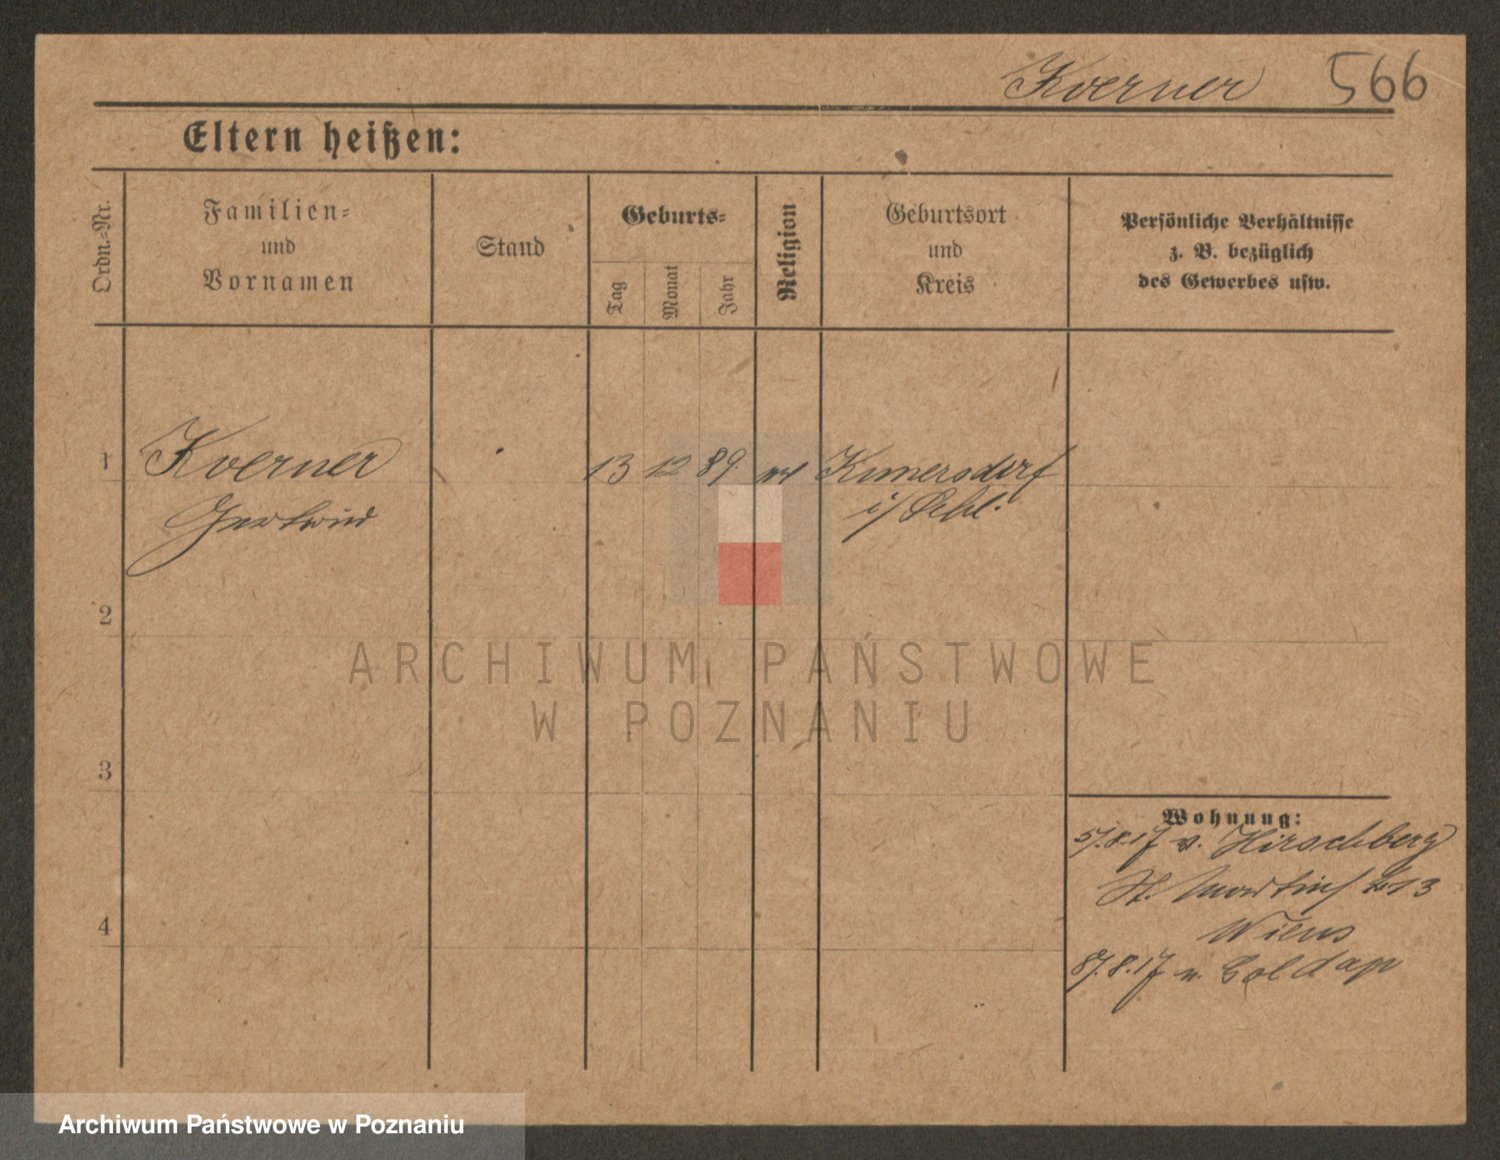 Koerner 566
Eltern heißen:
Ordn.-Nr.
Familien-
und
Vornamen
Stand
Geburts-
Tag
Monat
Jahr
Religion
Geburtsort
und
Kreis
Persönliche Verhältnisse
z. B. bezüglich
des Gewerbes usw.
1 Koerner 13 12 89 Kunersdorf
Gertrud i/ Schl.
2
3
4
Wohnung:
5/.8.17 v. Hirschberg
St. Martinst 13
Wiens
8/.8.17 n. Goldap
ARCHIWUM PAŃSTWOWE
W POZNANIU
Archiwum Państwowe w Poznaniu